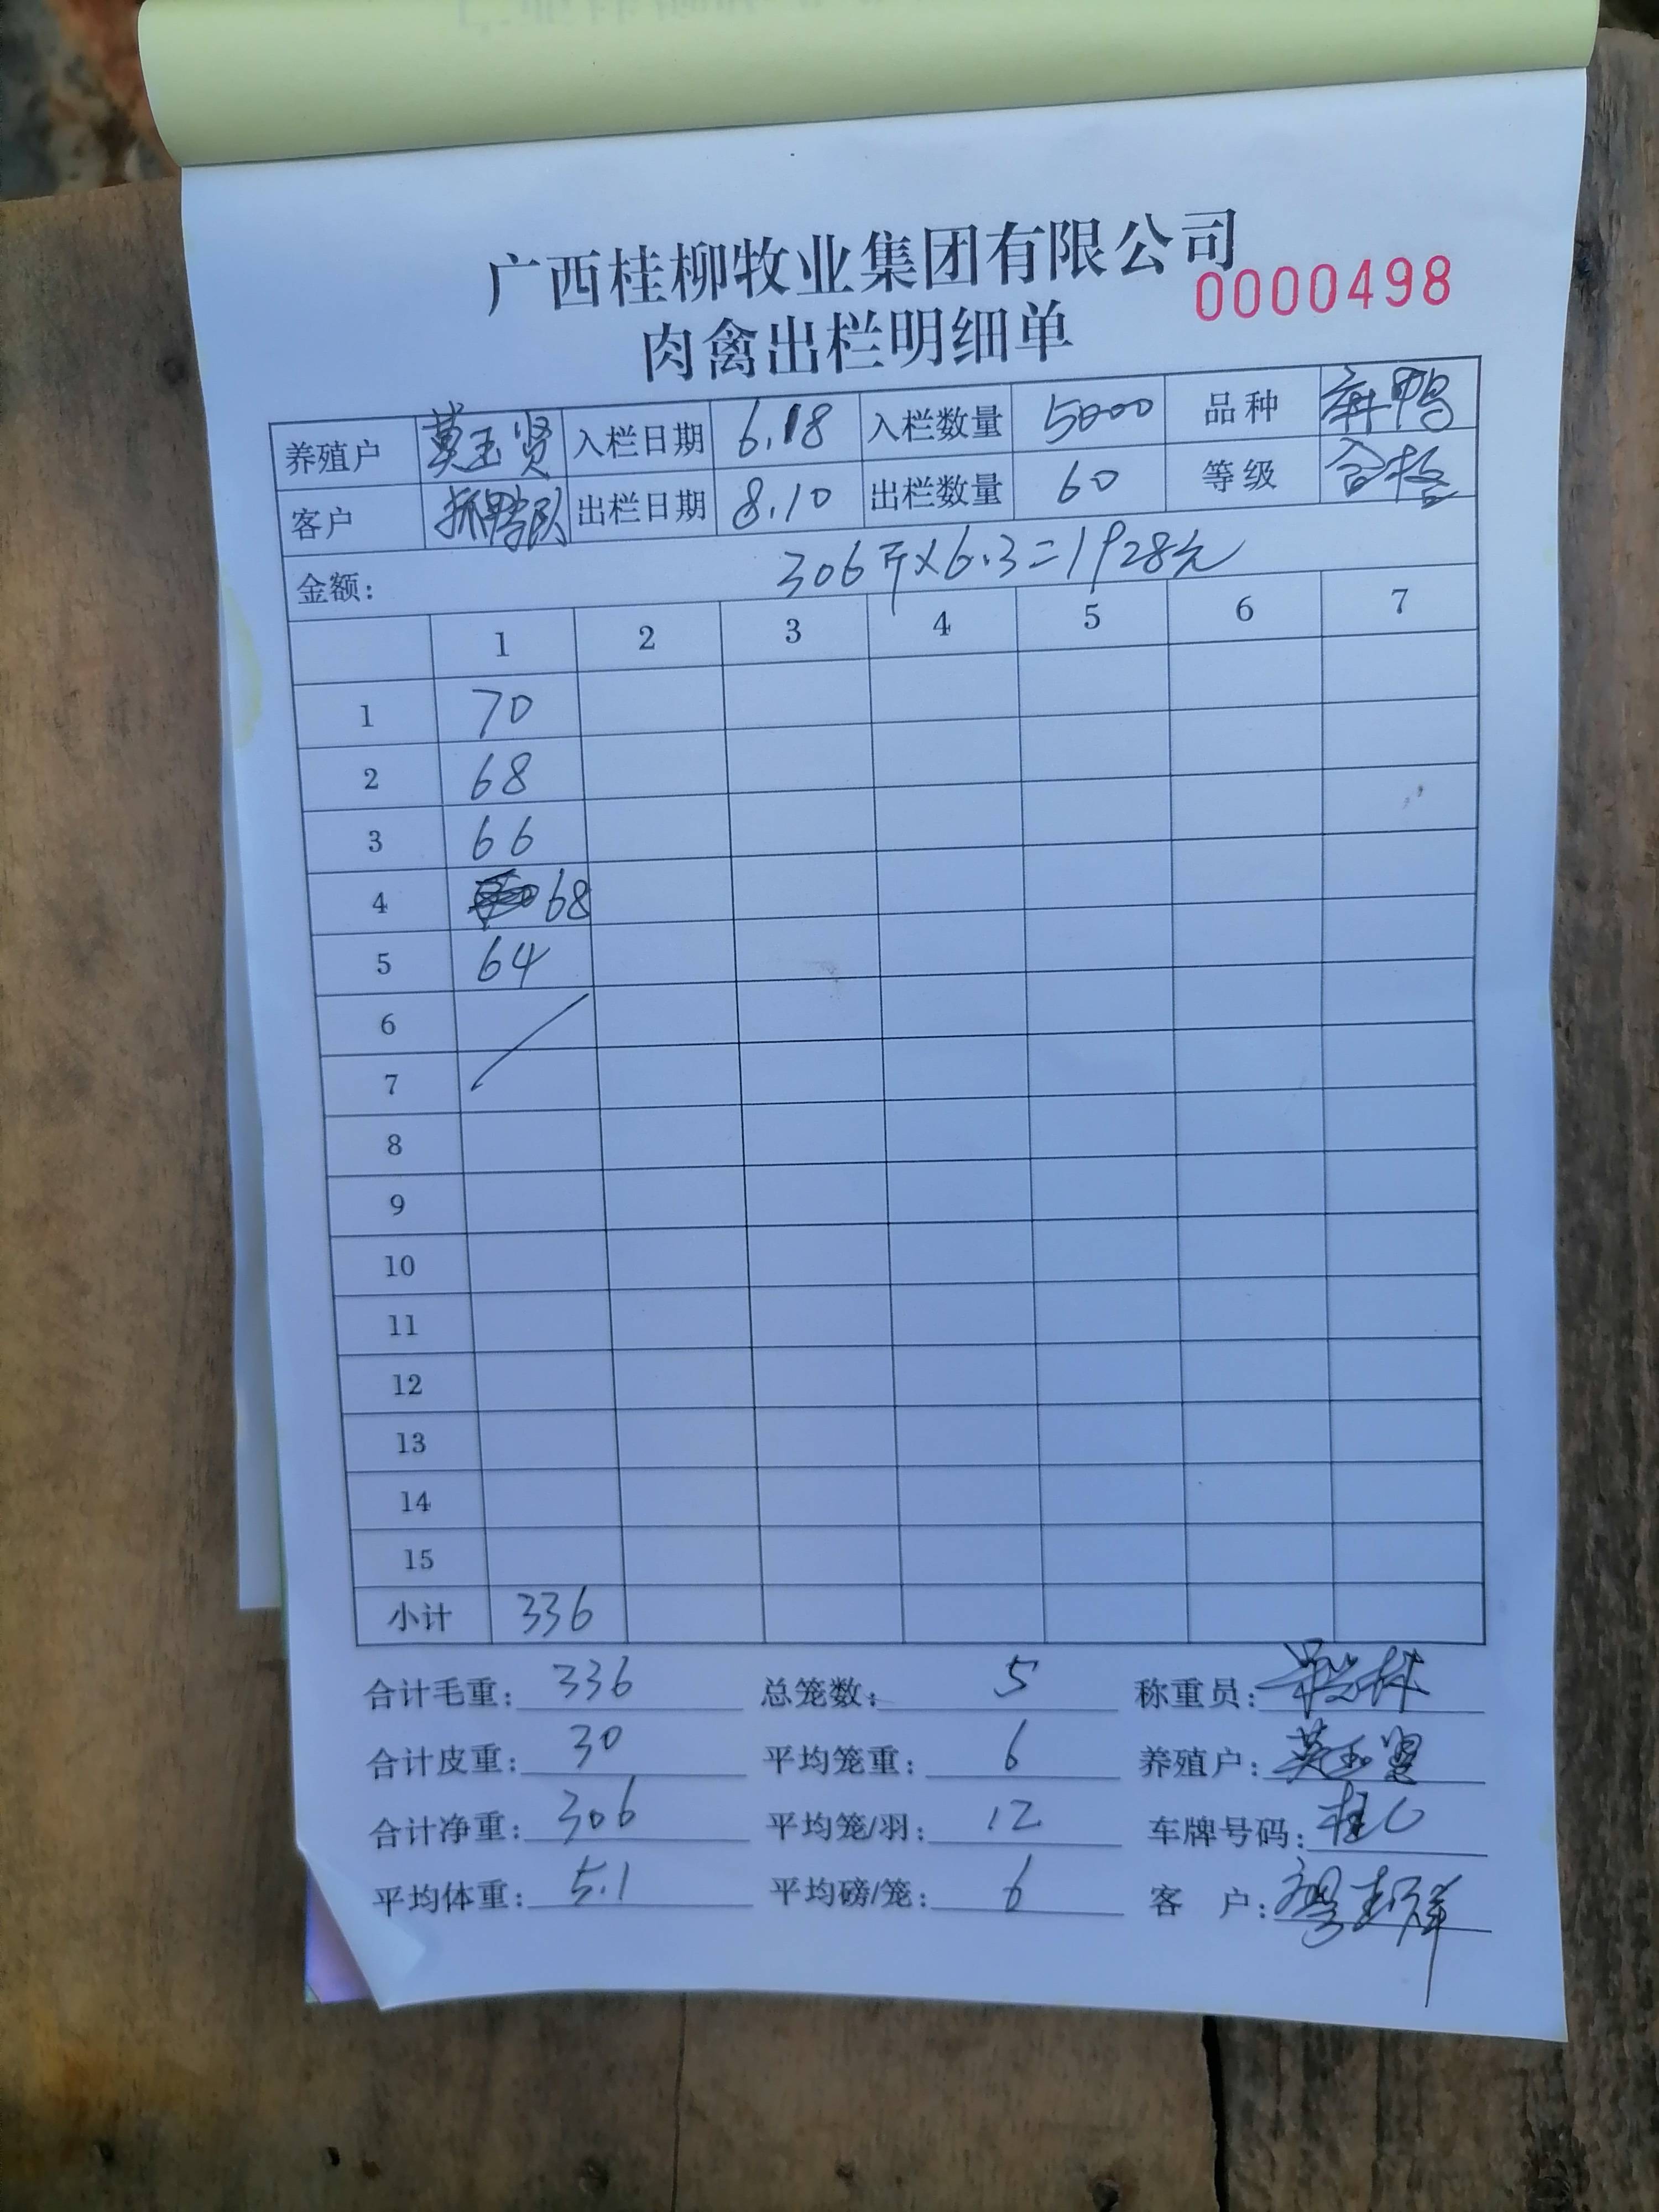 广西桂柳牧业集团有限公司
0000498
肉禽出栏明细单
养殖户 莫玉贤 入栏日期 6.18 入栏数量 5000 品种 麻鸭
客户 抓鸭队 出栏日期 8.10 出栏数量 60 等级 合格
金额: 306斤×6.3=1928元
1 2 3 4 5 6 7
1 70
2 68
3 66
4 68
5 64
6
7
8
9
10
11
12
13
14
15
小计 336
合计毛重: 336 总笼数: 5 称重员:
合计皮重: 30 平均笼重: 6 养殖户: 莫玉贤
合计净重: 306 平均笼/羽: 12 车牌号码: 桂C
平均体重: 5.1 平均磅/笼: 6 客 户: